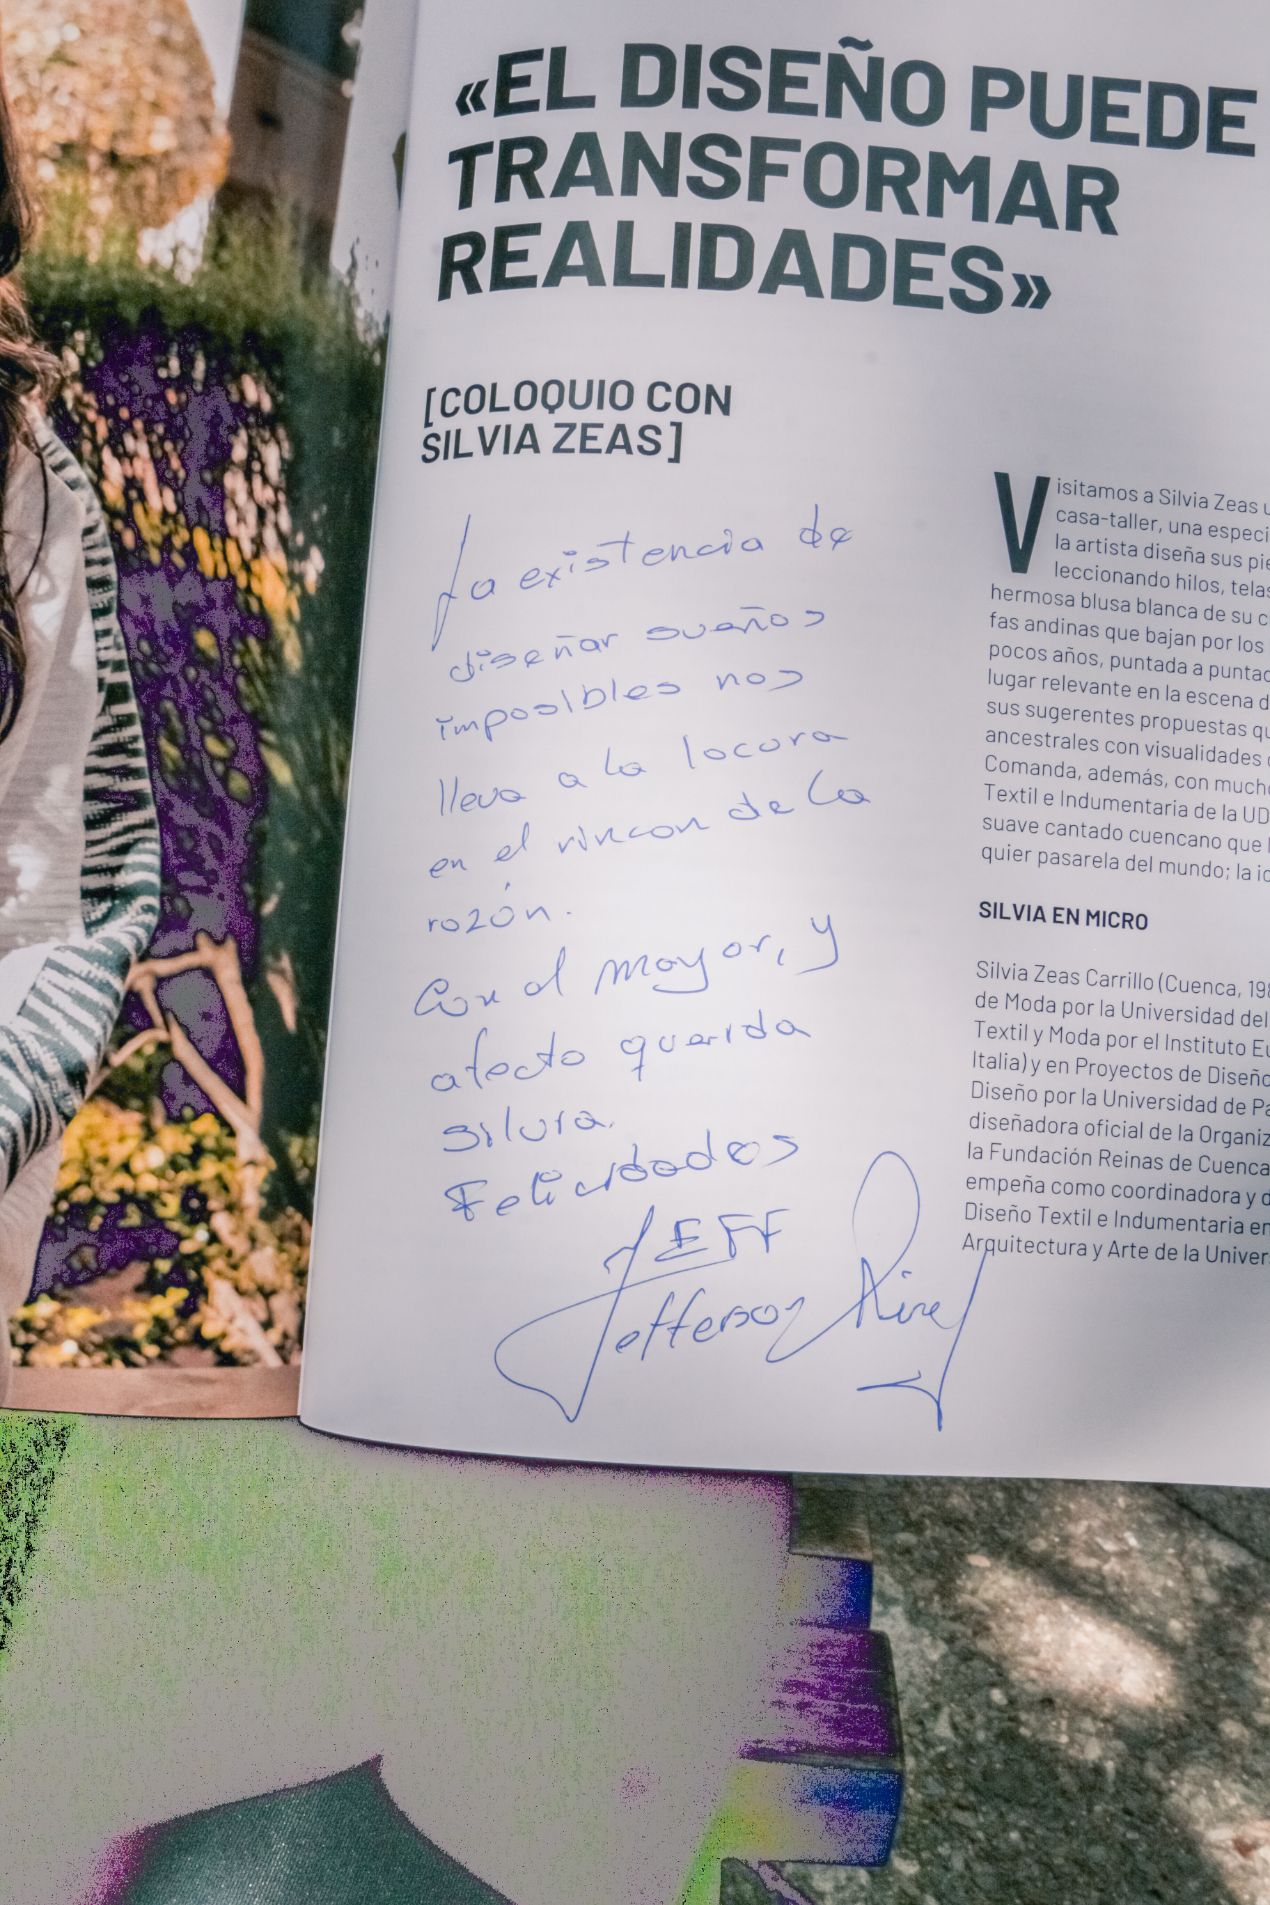 «EL DISEÑO PUEDE
TRANSFORMAR
REALIDADES»
[COLOQUIO CON
SILVIA ZEAS]
La existencia de
diseñar sueños
imposibles nos
lleva a la locura
en el rincon de la
razón.
Con el mayor, y
afecto querida
Silvia.
Felicidades
JEFF
Jefferson
Visitamos a Silvia Zeas
casa-taller, una
la artista diseña sus
leccionando hilos,
hermosa blusa blanca de su
fas andinas que bajan por los
pocos años, puntada a
lugar relevante en la escena
sus sugerentes propuestas
ancestrales con visualidades
Comanda, además, con
Textil e Indumentaria de la
suave cantado cuencano que
quier pasarela del mundo; la
SILVIA EN MICRO
Silvia Zeas Carrillo (Cuenca,
de Moda por la Universidad del
Textil y Moda por el Instituto
Italia) y en Proyectos de Diseño
Diseño por la Universidad de
diseñadora oficial de la
la Fundación Reinas de Cuenca
empeña como coordinadora y
Diseño Textil e Indumentaria en
Arquitectura y Arte de la